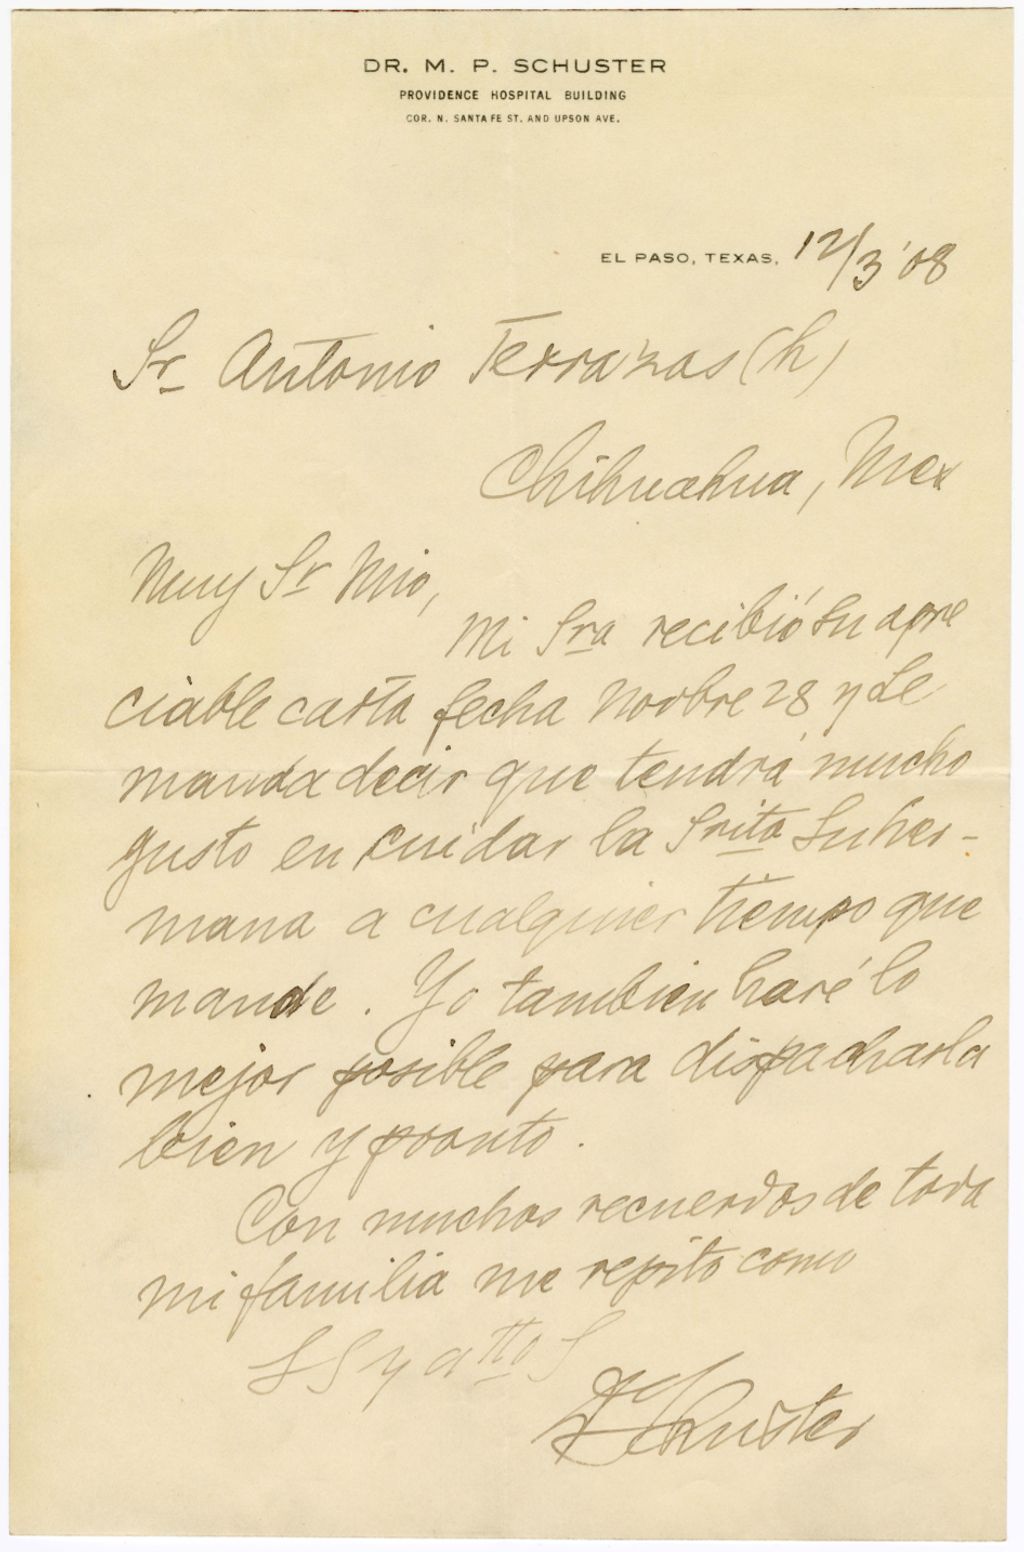 DR. M. P. SCHUSTER
PROVIDENCE HOSPITAL BUILDING
COR. N. SANTA FE ST. AND UPSON AVE.
EL PASO, TEXAS, 12/3 '08
Sr Antonio Terrazas (h)
Chihuahua, Mex
Muy Sr Mio,
Mi Sra recibió su apre
ciable carta fecha Novbre 28 y Le
manda decir que tendrá mucho
gusto en cuidar la Srita Su her-
mana a cualquier tiempo que
mande. Yo tambien haré lo
mejor posible para dispacharla
bien y pronto.
Con muchos recuerdos de toda
mi familia me repito como
S S y atto S
Schuster